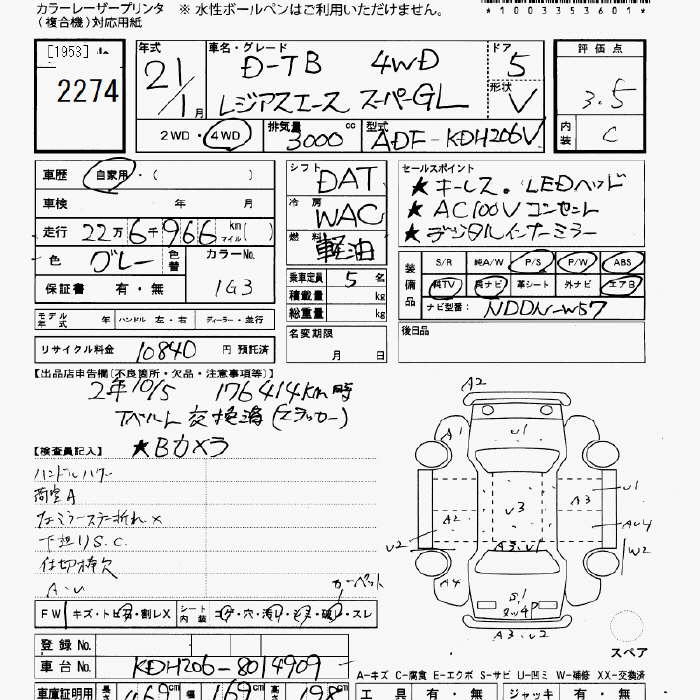 カラーレーザープリンタ ※ 水性ボールペンはご利用いただけません。
(複合機)対応用紙
*1003353601*
[1953]
2274
年式 21/1月
車名・グレード D-TB 4WD
レジアスエース スーパーGL
ドア 5
形状 V
評価点 3.5
内装 C
2WD・4WD 排気量 3000cc 型式 ADF-KDH206V
車歴 自家用・( )
車検 年 月
走行 22万6千966 km マイル( )
色 グレー 色替 カラーNo. 1G3
保証書 有・無
シフト DAT
冷房 WAC
燃料 軽油
乗車定員 5名
積載量 kg
総重量 kg
セールスポイント
★キーレス。LEDヘッド
★AC100Vコンセント
★デジタルインナーミラー
装備品 S/R 純A/W P/S P/W ABS
純TV 純ナビ 革シート 外ナビ エアB
ナビ型番: NDDN-W57
モデル年式 年 ハンドル 左・右 ディーラー・並行
名変期限 月 日
後日品
リサイクル料金 10840 円 預託済
【出品店申告欄(不良箇所・欠品・注意事項等)】
2年10/5 176414km時
Tベルト交換済(ステッカー)
★Bカメラ
【検査員記入】
ハンドルハゲ
荷室A
下廻りS.C.
仕切棒欠
A・U
カーペット
FW キズ・トビ石・割レX シート内装 コゲ・穴・汚レ・シミ・破レ・スレ
登録No.
車台No. KDH206-8014909
車庫証明用 長さ 469cm 幅 169cm 高さ 198cm
A2
A1
U1
A3
U1
A2
U3
AU4
U2
A3.U1
W2
A4
S1
タッチP
A3.U2
スペア
A-キズ C-腐食 E-エクボ S-サビ U-凹ミ W-補修 XX-交換済
工具 有・無 ジャッキ 有・無